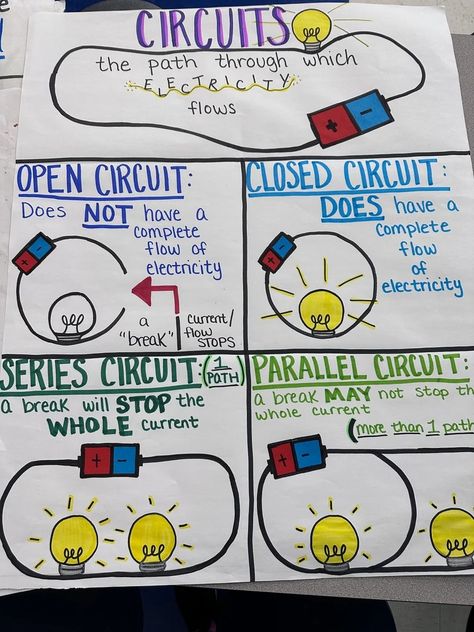 CIRCUITS
the path through which
ELECTRICITY
flows
+ -
OPEN CIRCUIT:
Does NOT have a
complete
flow of
electricity
+ -
a
"break"
current/
flow
STOPS
CLOSED CIRCUIT:
DOES have a
complete
flow
of
electricity
+ -
SERIES CIRCUIT: (1
PATH)
a break will STOP the
WHOLE current
+ -
PARALLEL CIRCUIT:
a break MAY not stop the
whole current
(more than 1 path
+ -